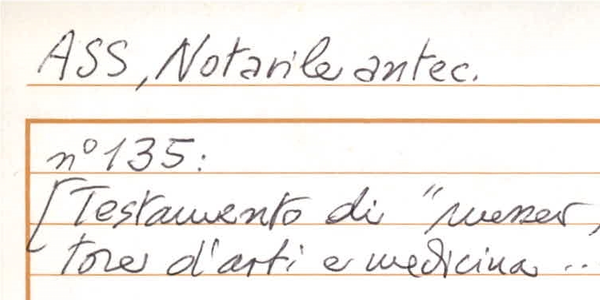 ASS, Notarile antec.
n° 135:
[Testamento di "messer,
tore d'arti e medicina ..